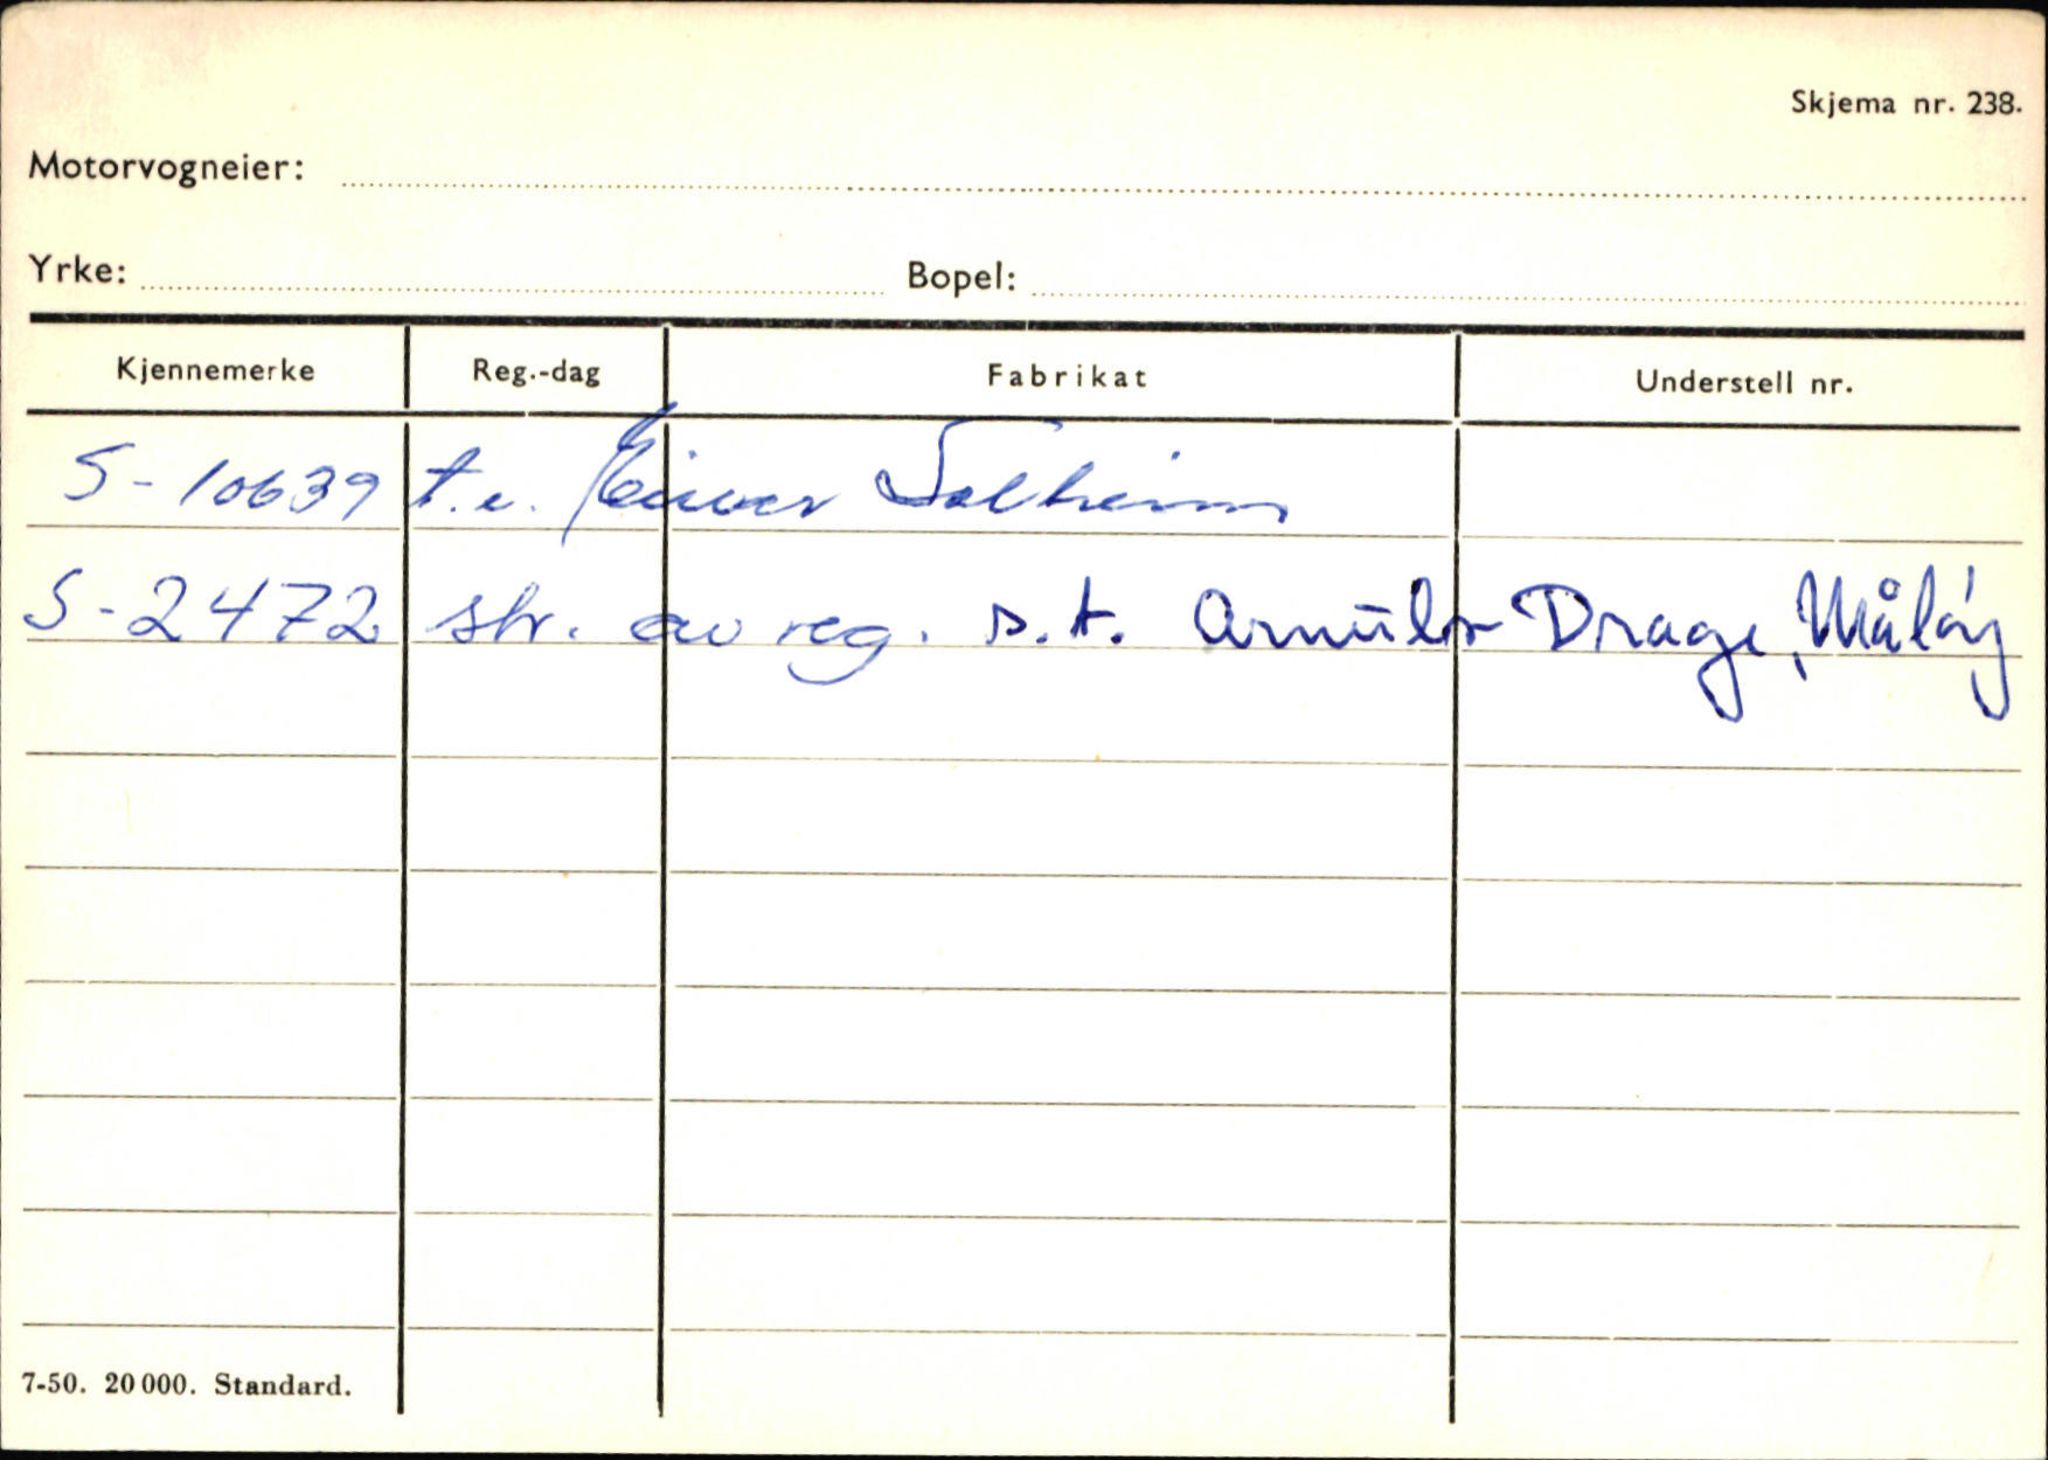 Skjema nr. 238.
Motorvogneier:
Yrke: Bopel:
Kjennemerke Reg.-dag Fabrikat Understell nr.
S-10639 t.e. Einar Solheim
S-2472 str. av reg. s.t. Arnulv Drage, Måløy
7-50. 20 000. Standard.